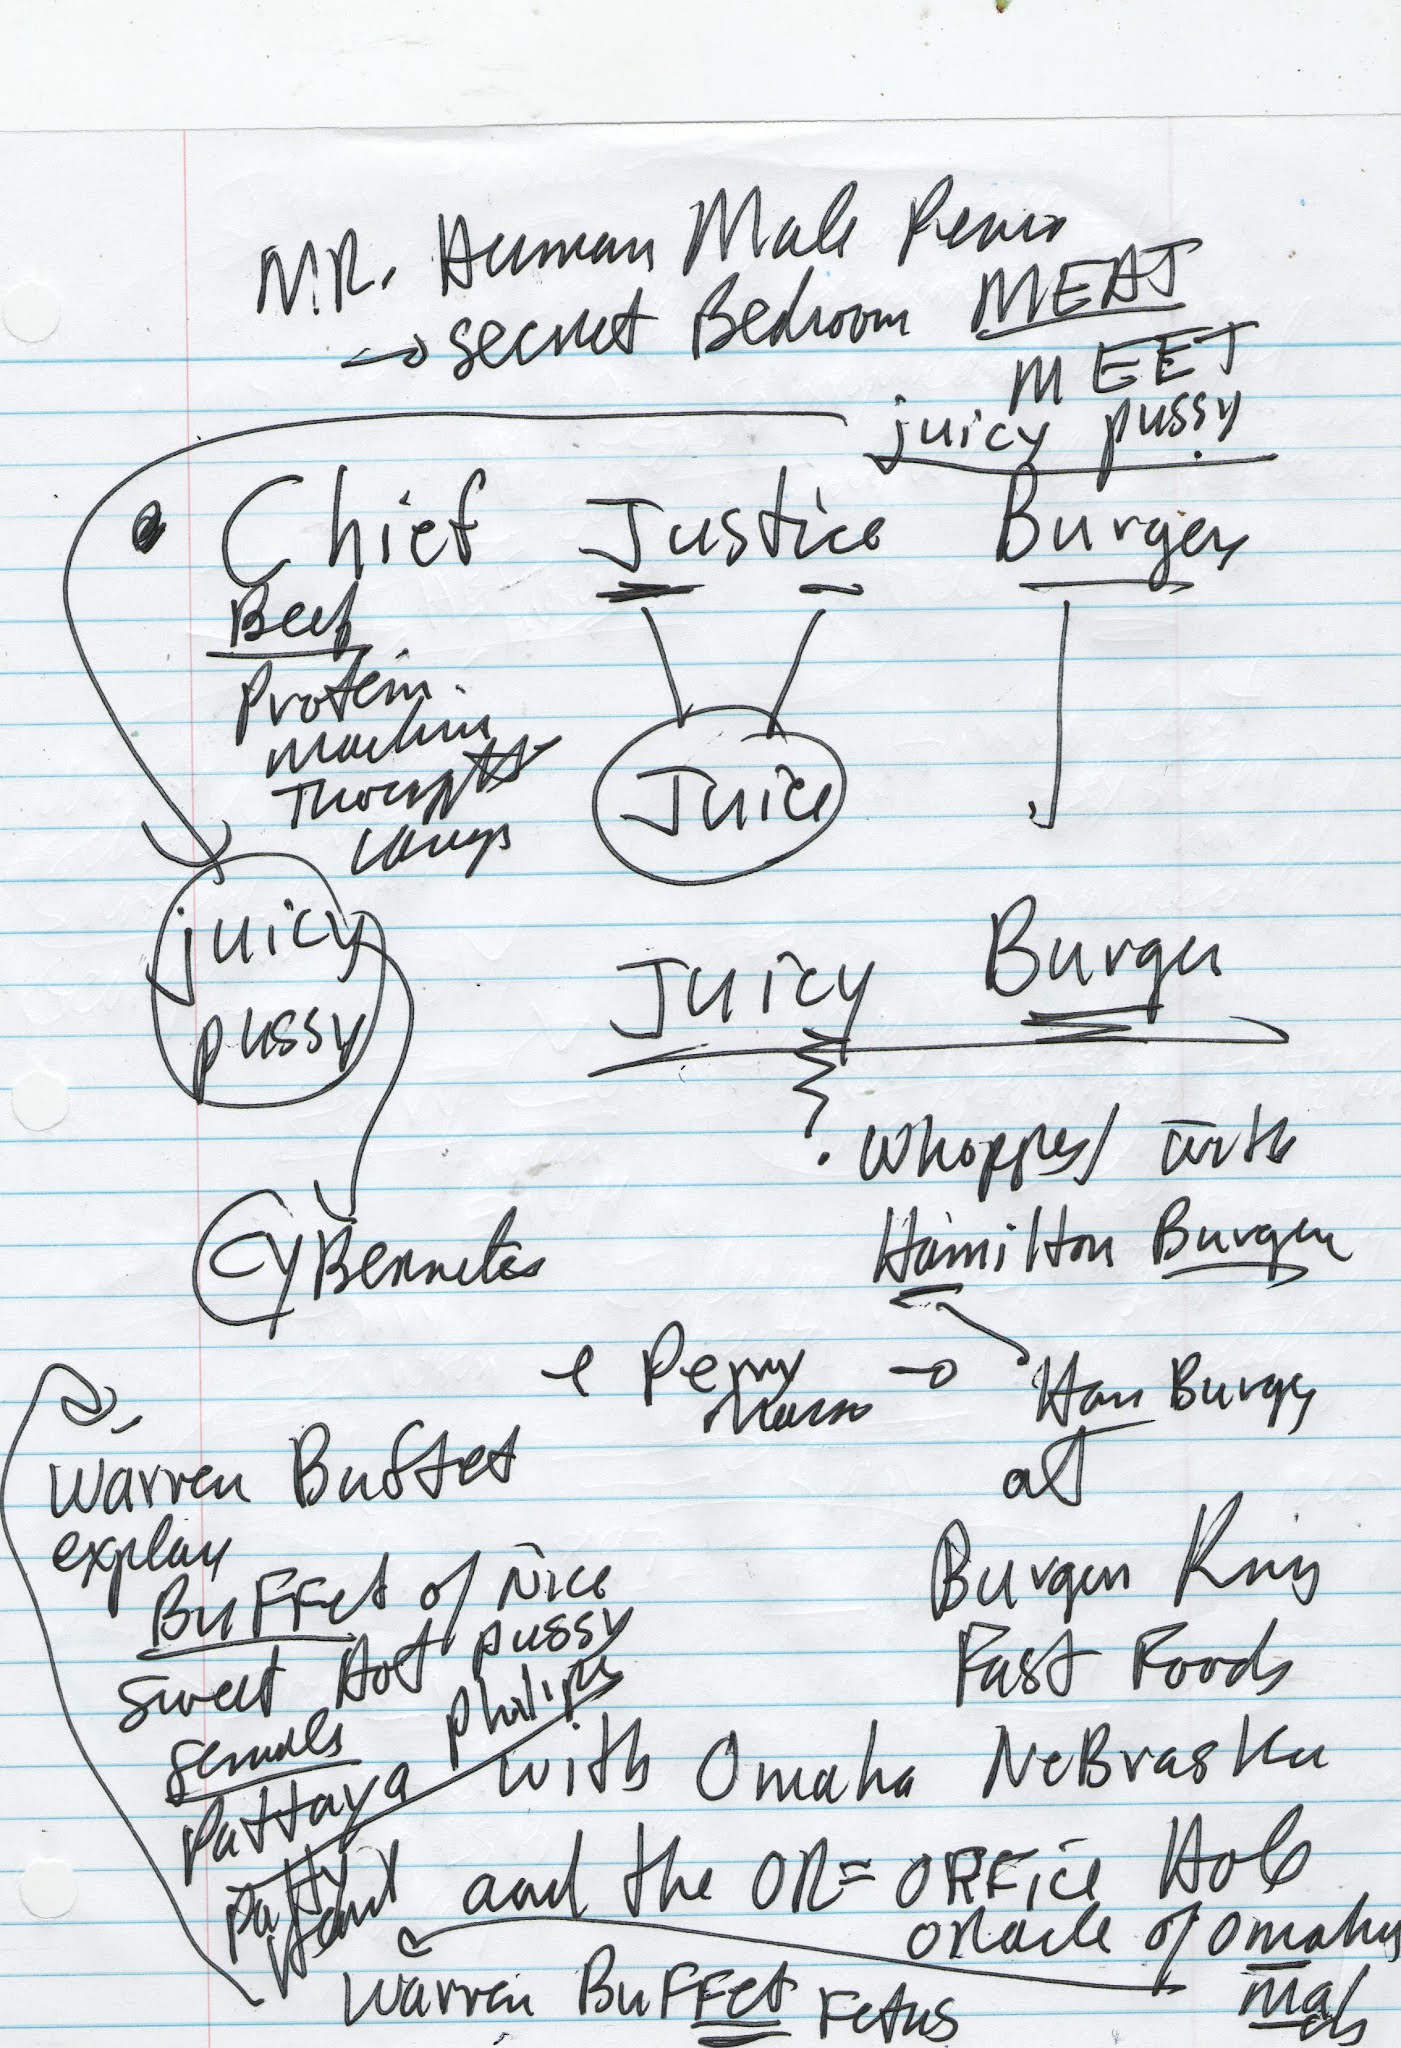 Mr. Human Male Penis
secret Bedroom MEAT
MEET
juicy pussy
Chief Justice Burger
Beef
Protein.
machin
Thoughts
Juice
juicy
pussy
Juicy Burger
Whopper with
Hamilton Burger
Cybernetes
Perry
Mason
Ham Burger
at
Burger King
Fast Foods
Warren Buffet
explain
BuFFet of Nice
sweet Hot pussy
females
Pattaya
philips
Patty
Hearst
with Omaha NeBraska
and the OR = ORFice Hole
oracle of omaha
ma
Warren BuFFet Fetus